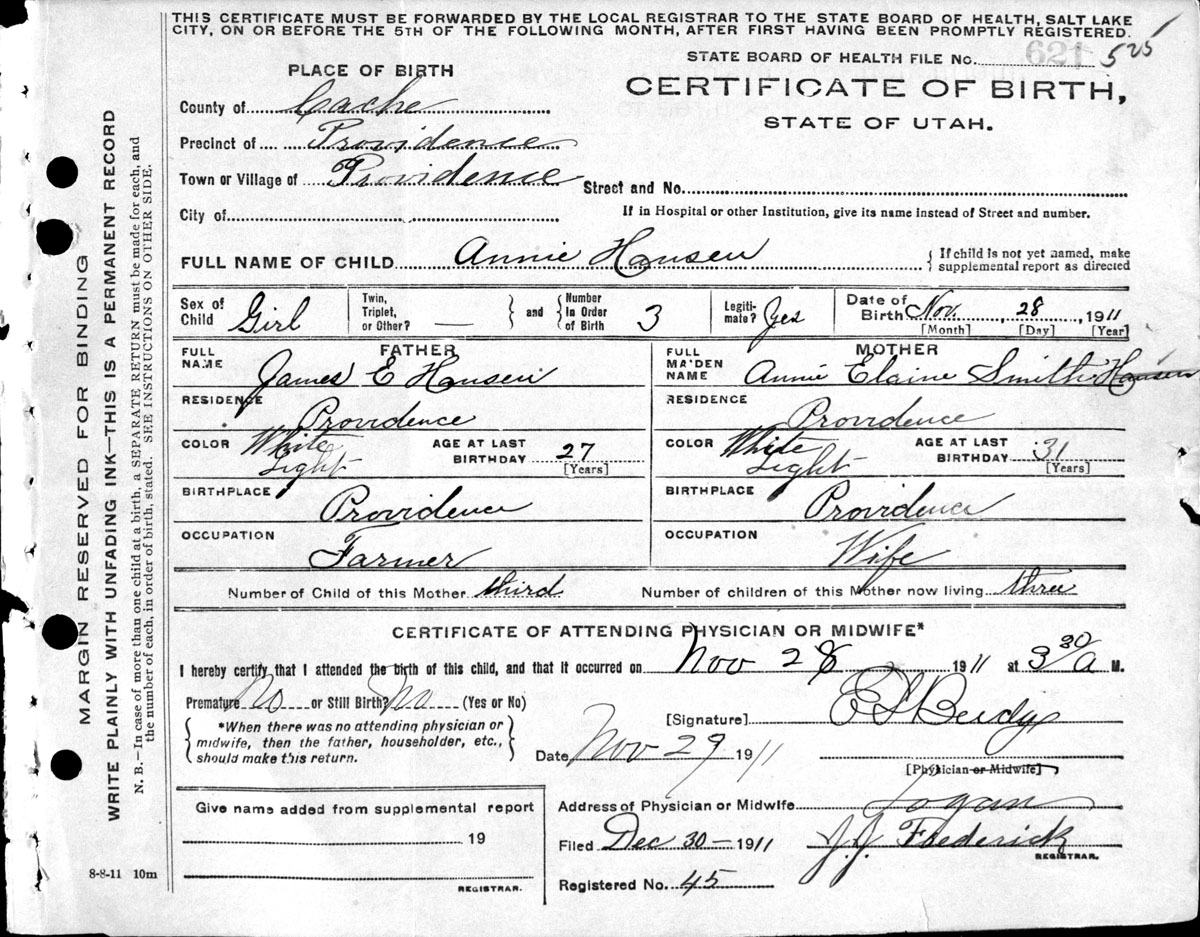 THIS CERTIFICATE MUST BE FORWARDED BY THE LOCAL REGISTRAR TO THE STATE BOARD OF HEALTH, SALT LAKE
CITY, ON OR BEFORE THE 5TH OF THE FOLLOWING MONTH, AFTER FIRST HAVING BEEN PROMPTLY REGISTERED.
STATE BOARD OF HEALTH FILE No. 621 525
PLACE OF BIRTH
CERTIFICATE OF BIRTH,
STATE OF UTAH.
County of Cache
Precinct of Providence
Town or Village of Providence Street and No.
City of If in Hospital or other Institution, give its name instead of Street and number.
FULL NAME OF CHILD Annie Hansen { If child is not yet named, make
supplemental report as directed
Sex of Child Girl Twin, Triplet, or Other? — } and { Number In Order of Birth 3 Legiti-mate? Yes Date of Birth Nov. 28, 1911
[Month] [Day] [Year]
FATHER MOTHER
FULL NAME James E Hansen FULL MAIDEN NAME Annie Elaine Smith Hansen
RESIDENCE Providence RESIDENCE Providence
COLOR White Light AGE AT LAST BIRTHDAY 27 [Years] COLOR White Light AGE AT LAST BIRTHDAY 31 [Years]
BIRTHPLACE Providence BIRTHPLACE Providence
OCCUPATION Farmer OCCUPATION Wife
Number of Child of this Mother third Number of children of this Mother now living three
CERTIFICATE OF ATTENDING PHYSICIAN OR MIDWIFE*
I hereby certify that I attended the birth of this child, and that it occurred on Nov 28 1911 at 3 30 A M.
Premature No or Still Birth? No (Yes or No)
*When there was no attending physician or
midwife, then the father, householder, etc.,
should make this return.
[Signature]
Date Nov 29 1911
[Physician or Midwife]
Give name added from supplemental report
19
REGISTRAR.
Address of Physician or Midwife Logan
Filed Dec 30 — 1911 J. J. Frederick
REGISTRAR.
Registered No. 45
8-8-11 10m
MARGIN RESERVED FOR BINDING
WRITE PLAINLY WITH UNFADING INK—THIS IS A PERMANENT RECORD
N. B.—In case of more than one child at a birth, a SEPARATE RETURN must be made for each, and
the number of each, in order of birth, stated. SEE INSTRUCTIONS ON OTHER SIDE.